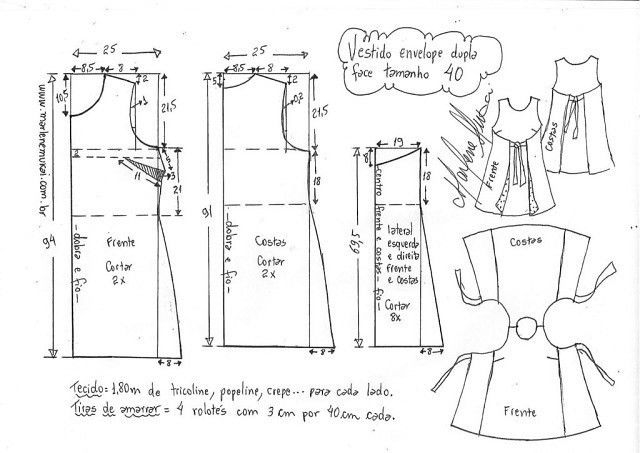 Vestido envelope dupla
face tamanho 40
Costas
Frente
www.marlenemukai.com.br
25
8,5
8
2
10,5
1
21,5
2
9
3
11
21
94
Frente
Cortar
2x
-dobra e fio-
8
25
8,5
8
2
5
0,2
21,5
18
91
Costas
Cortar
2x
-dobra e fio-
8
19
8
18
69,5
centro frente e costas-fio-
lateral
esquerda
e direita
frente
e costas
Cortar
8x
8
Costas
Frente
Tecido=1,80m de tricoline, popeline, crepe... para cada lado.
Tiras de amarrar = 4 rolotés com 3cm por 40cm cada.